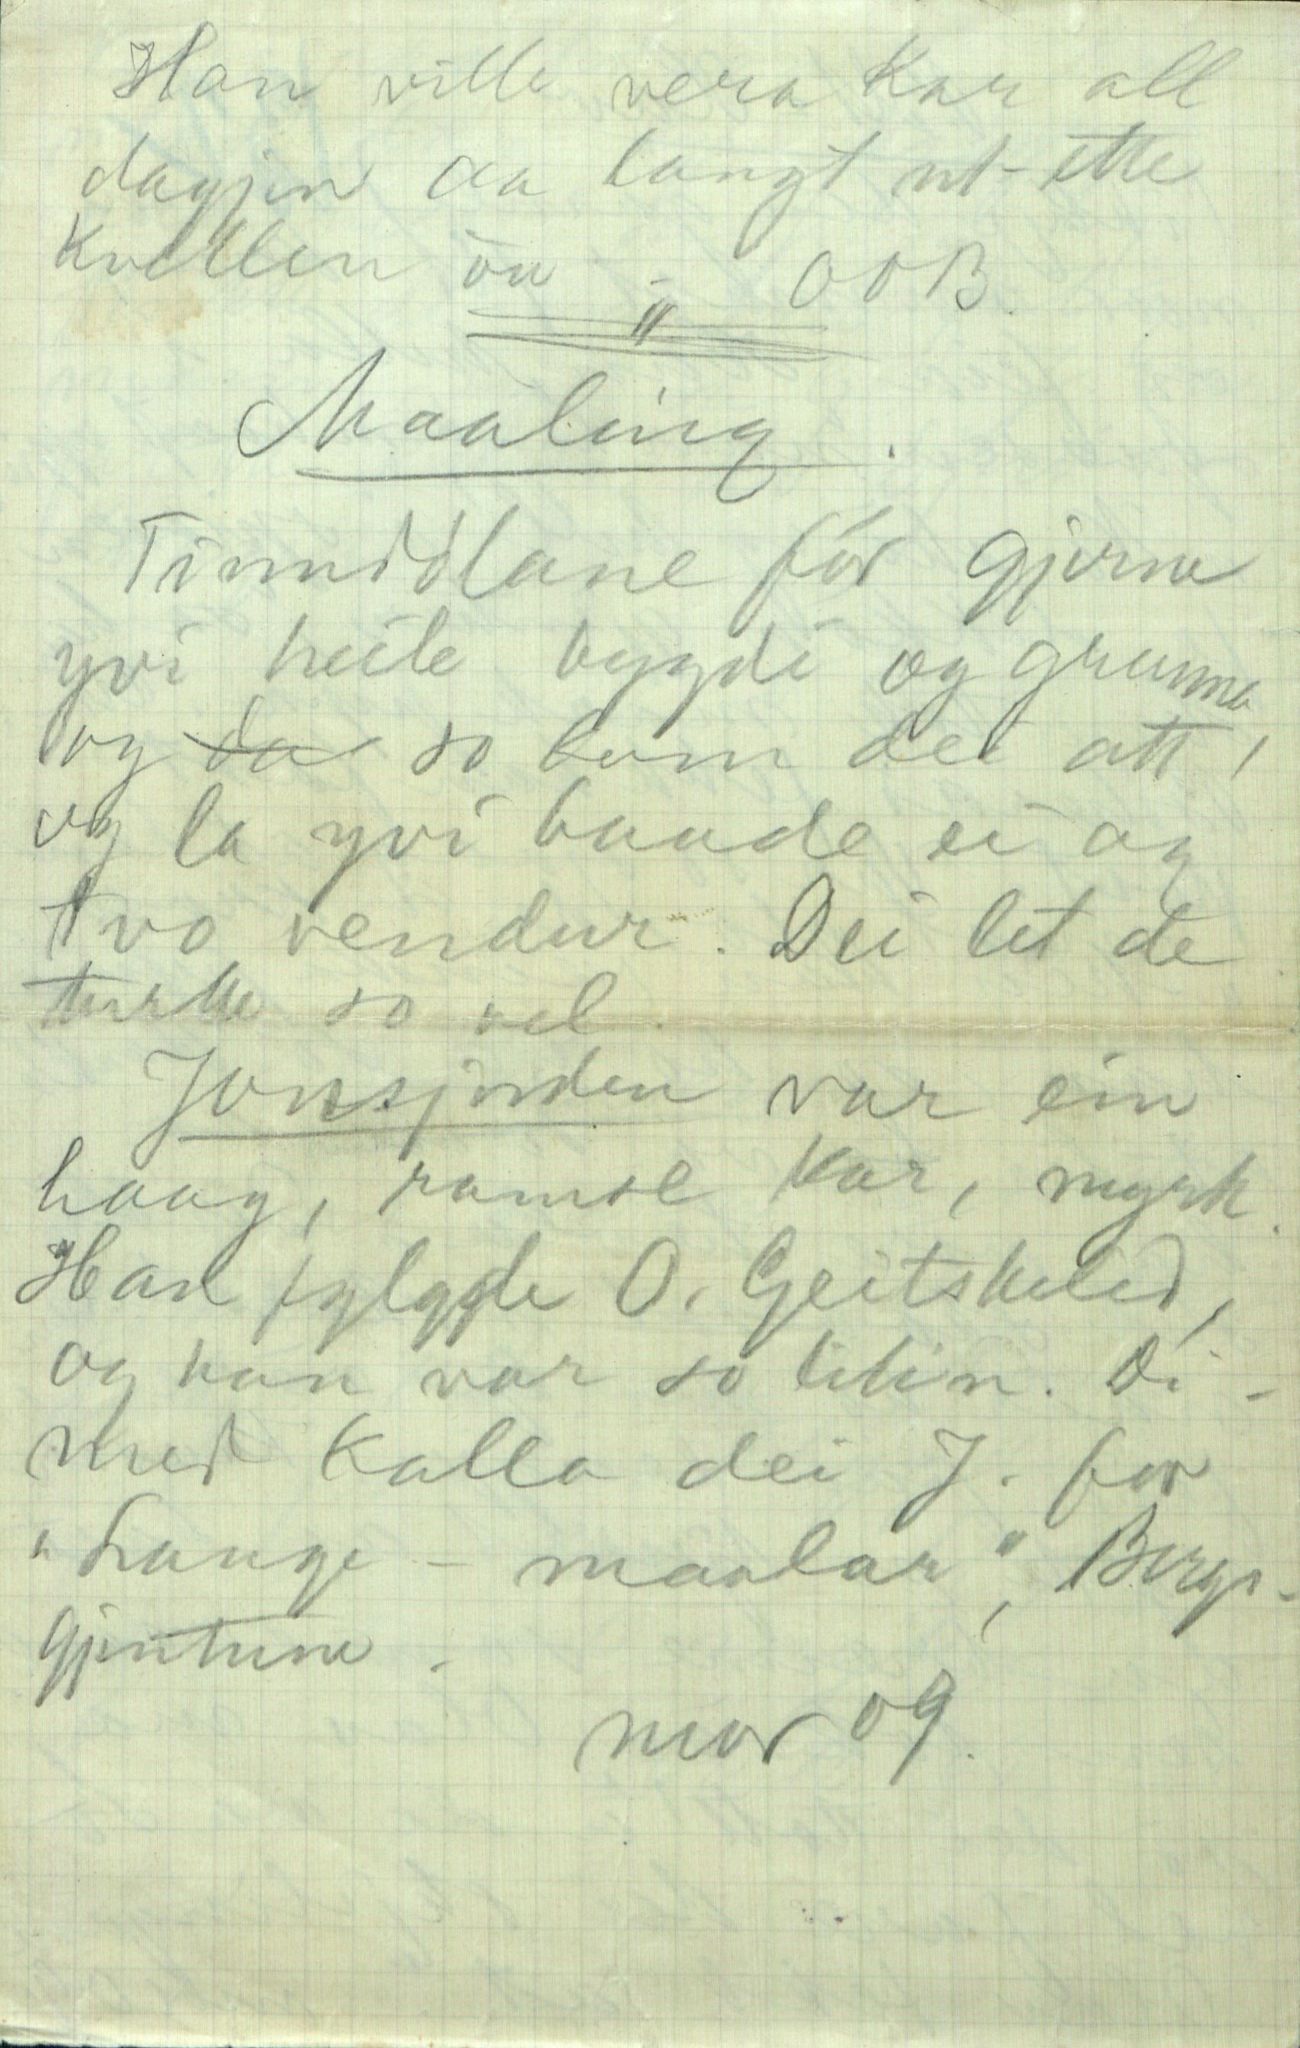 Han ville vera kar all
dagjen aa langt ut-ette
Kvelden òu „ OOB.
Maaling.
Tinnidlane fór gjerne
yvi heile bygdi og grunna
og da so kom dei att,
og la yvi baade ei og
tvo vendur. Dei let de
turke so vel.
Jonsjorden var ein
haag, ramse kar, myrk.
Han fylgde O. Geitskelid,
og han var so liten. Di-
med kalla dei J. for
"Lange-maalar", Bergs-
gjentune.
mor 09.